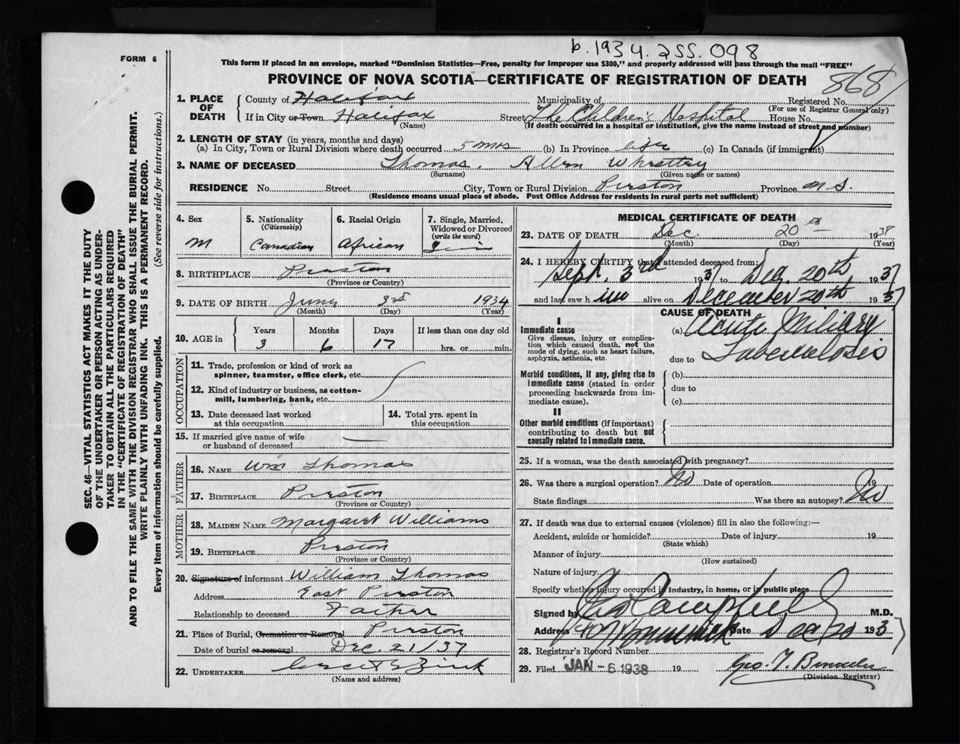 b. 1934. 255.098
FORM 6
This form if placed in an envelope, marked "Dominion Statistics—Free, penalty for improper use $300," and properly addressed will pass through the mail "FREE"
PROVINCE OF NOVA SCOTIA—CERTIFICATE OF REGISTRATION OF DEATH
868
1. PLACE OF DEATH
County of Halifax Municipality of Registered No.
(For use of Registrar General only)
If in City or Town Halifax Street The Children's Hospital House No.
(Name) (If death occurred in a hospital or institution, give the name instead of street and number)
2. LENGTH OF STAY (in years, months and days)
(a) In City, Town or Rural Division where death occurred 5 mos (b) In Province life (c) In Canada (if immigrant)
3. NAME OF DECEASED Thomas, Allen
(Surname) (Given name or names)
RESIDENCE No. Street City, Town or Rural Division Preston Province N.S.
(Residence means usual place of abode. Post Office Address for residents in rural parts not sufficient)
4. Sex M
5. Nationality (Citizenship) Canadian
6. Racial Origin African
7. Single, Married, Widowed or Divorced (write the word)
8. BIRTHPLACE Preston
(Province or Country)
9. DATE OF BIRTH June 3rd 1934
(Month) (Day) (Year)
10. AGE in Years 3 Months 6 Days 17 If less than one day old hrs. or min.
OCCUPATION
11. Trade, profession or kind of work as spinner, teamster, office clerk, etc.
12. Kind of industry or business, as cotton-mill, lumbering, bank, etc.
13. Date deceased last worked at this occupation
14. Total yrs. spent in this occupation
15. If married give name of wife or husband of deceased
FATHER
16. NAME Wm Thomas
17. BIRTHPLACE Preston
(Province or Country)
MOTHER
18. MAIDEN NAME Margaret Williams
19. BIRTHPLACE Preston
(Province or Country)
20. Signature of informant William Thomas
Address East Preston
Relationship to deceased Father
21. Place of Burial, Cremation or Removal Preston
Date of burial or removal Dec. 21/37
22. UNDERTAKER Zink
(Name and address)
MEDICAL CERTIFICATE OF DEATH
23. DATE OF DEATH Dec. 20th 1938
(Month) (Day) (Year)
24. I HEREBY CERTIFY that I attended deceased from:
Sept. 3rd 1937 to Dec. 20th 1937
and last saw him alive on December 20th 1937
CAUSE OF DEATH
I
Immediate cause
Give disease, injury or complication which caused death, not the mode of dying, such as heart failure, asphyxia, asthenia, etc.
(a) Acute Miliary
due to Tuberculosis
Morbid conditions, if any, giving rise to immediate cause (stated in order proceeding backwards from immediate cause).
(b)
due to
(c)
II
Other morbid conditions (if important) contributing to death but not causally related to immediate cause.
25. If a woman, was the death associated with pregnancy?
26. Was there a surgical operation? No Date of operation 19
State findings Was there an autopsy? No
27. If death was due to external causes (violence) fill in also the following:—
Accident, suicide or homicide? Date of injury 19
(State which)
Manner of injury
(How sustained)
Nature of injury
Specify whether injury occurred in industry, in home, or in public place
Signed by Campbell M.D.
Address Date Dec 20 1937
28. Registrar's Record Number
29. Filed JAN -6 1938 19
(Division Registrar)
SEC. 46—VITAL STATISTICS ACT MAKES IT THE DUTY
OF THE UNDERTAKER OR PERSON ACTING AS UNDER-
TAKER TO OBTAIN ALL THE PARTICULARS REQUIRED
IN THE "CERTIFICATE OF REGISTRATION OF DEATH"
AND TO FILE THE SAME WITH THE DIVISION REGISTRAR WHO SHALL ISSUE THE BURIAL PERMIT.
WRITE PLAINLY WITH UNFADING INK. THIS IS A PERMANENT RECORD.
Every item of information should be carefully supplied. (See reverse side for instructions.)